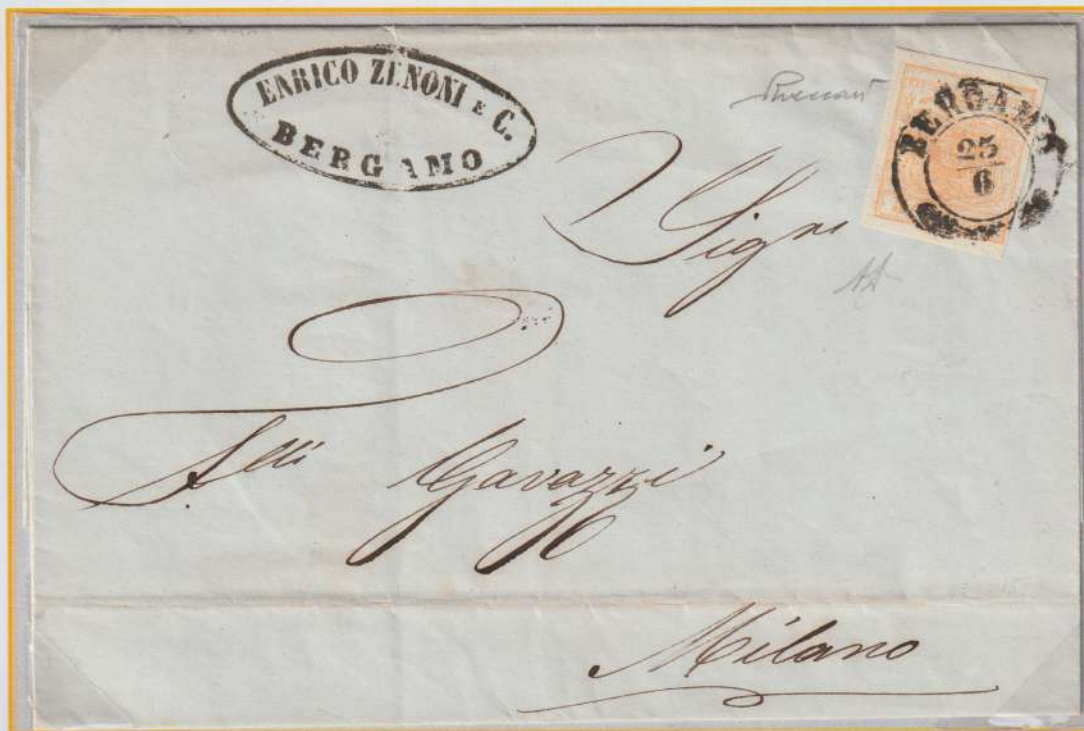 ENRICO ZENONI E C.
BERGAMO
BERGAMO
25
6
Sigri
Flli Gavazzi
Milano